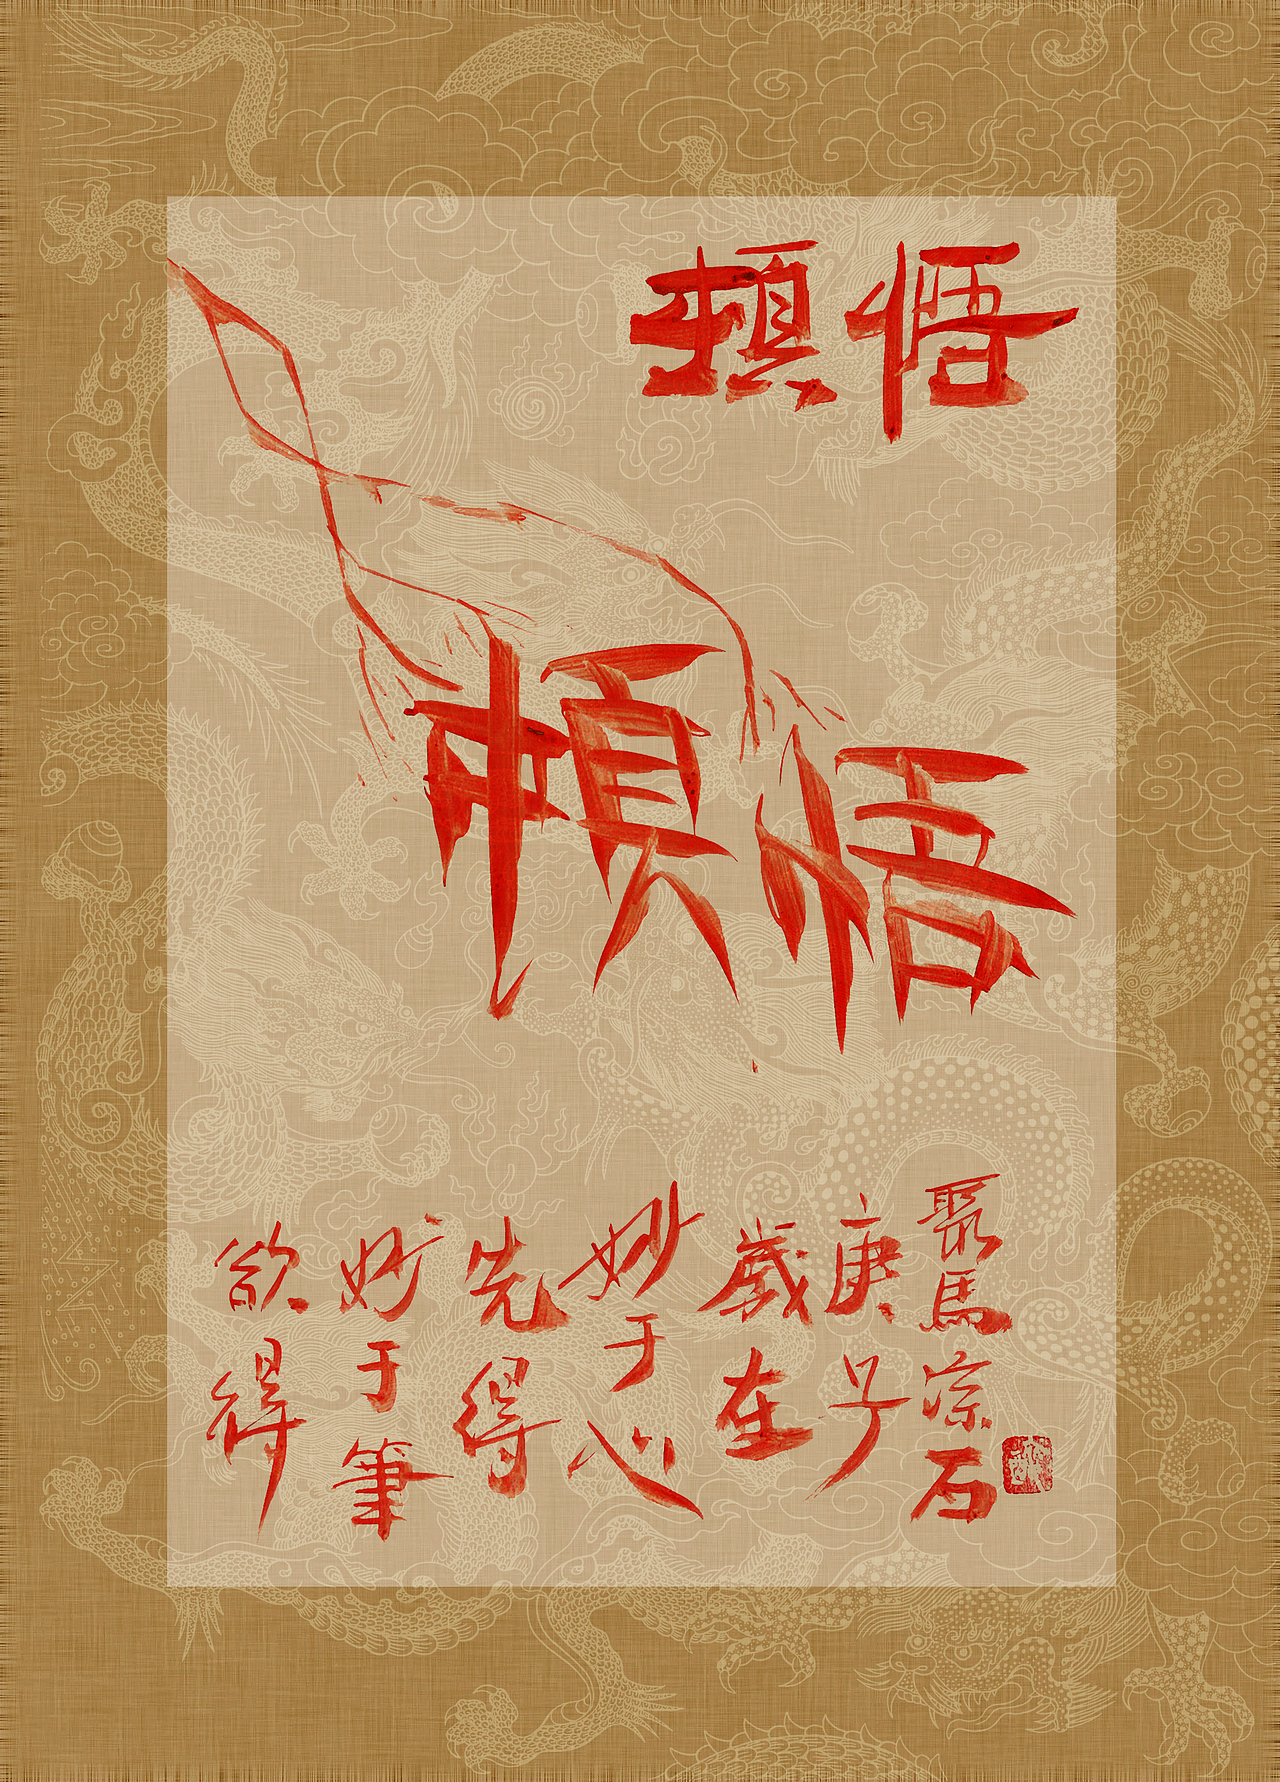 頓悟
頓悟
欲得
妙于筆
先得
妙于心
歲在
庚子
聚馬涼石